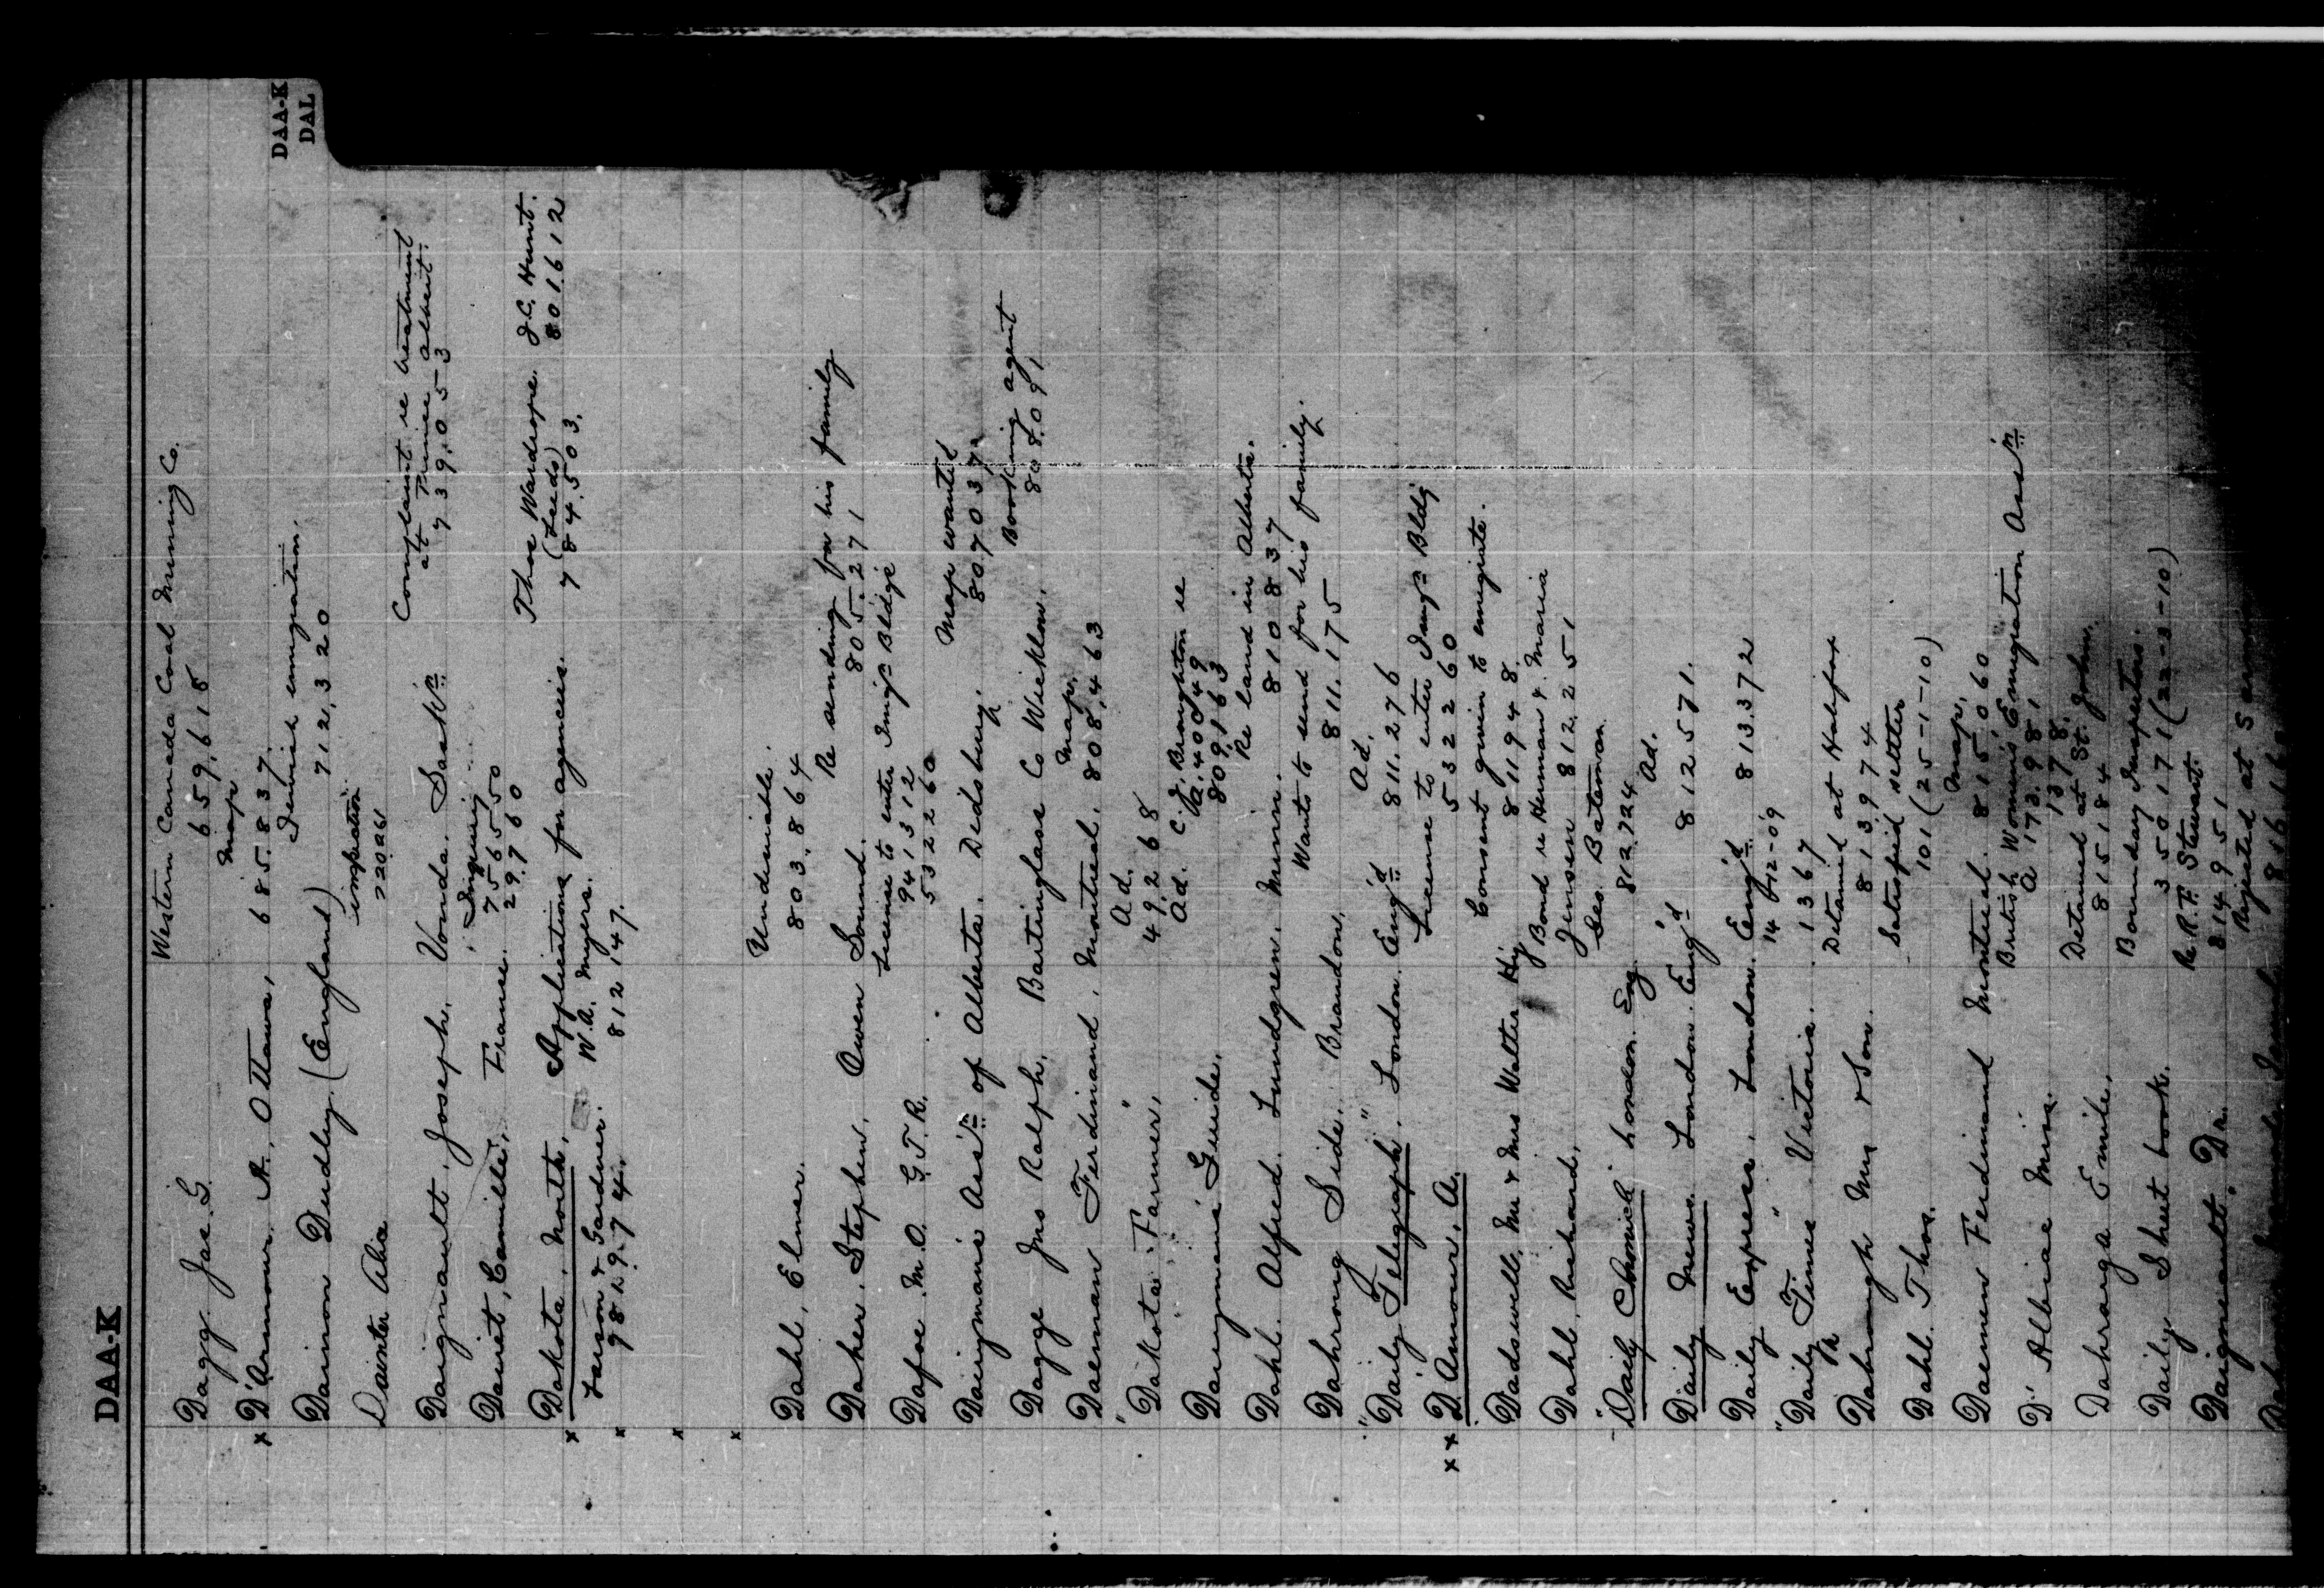 DAA-K
DAA-K
DAL
Dagg Jas. G. Western Canada Coal Mining Co.
659,618
Map
x D'Armour. A., Ottawa, 685,837
Dainon Dudley. (England) Jewish emigration.
712,320
Dainter Alia
220261
Daignault. Joseph. Vonda. Sask'n Complaint re treatment
at Prince Albert
739,053
Dauet, Camille, France. Inquiry
756550
29760
x Dakota, North, Applications for agencies. Thos Wardrope. J.C. Hunt.
(Leeds) 801612
784,503.
x Larson & Gardner. W.A. Myers.
982974. 812147.
x
x
Dahl, Elmer. Undesirable.
803,864
Daher, Stephen, Owen Sound. Re sending for his family
805,271
Dafoe. M.O. G.T.R. License to enter Imig'n Bldge
941312
532260
Dairymans Ass'n of Alberta. Didsbury. Map wanted
807037
Dagge Jno Ralph, Bartinglass Co Wicklow. Booking agent
808,091
Daeman Ferdinand, Montreal, Map.
808,463
"Dakota Farmer" Ad.
49268
Dairymens Guide, Ad. C.J. Broughton re
Va. 400949
809163
Dahl. Alfred. Lundgren. Minn. Re land in Alberta.
810837
Dahrong Side. Brandon, Wants to send for his family.
811,175
"Daily Telegraph" London. Eng'd Ad.
811,276
x x D'Amour, A. License to enter Imig'n Bldg
532260
Dadswell. Mr & Mrs Walter Hy Consent given to emigrate.
811948.
Dahl. Richard, Bond re Herman & Maria
Jensen 812,251
"Daily Chronicle" London. Eng. Geo. Bateman
812,724
Daily News London. Eng'd Ad.
812571.
Daily Express, London. Eng'd 813372
14-12-09
"Daily Times" Victoria. 1367
Dahrmugh Mrs & Son. Detained at Halifax
813974
Dahl. Thos. Satisfied settler
101 (25-1-10)
Daemen Ferdinand Montreal. Map.
815,060
D'Albiac Miss. British Women's Emigration Ass'n
A 173.981
1378.
Dahrarga Emile, Detained at St. John.
815184
Daily Sheet book. Boundary Inspectors.
350171 (22-3-10)
Daigneault. Dr. Re R.F. Stewart.
814951
Rejected at